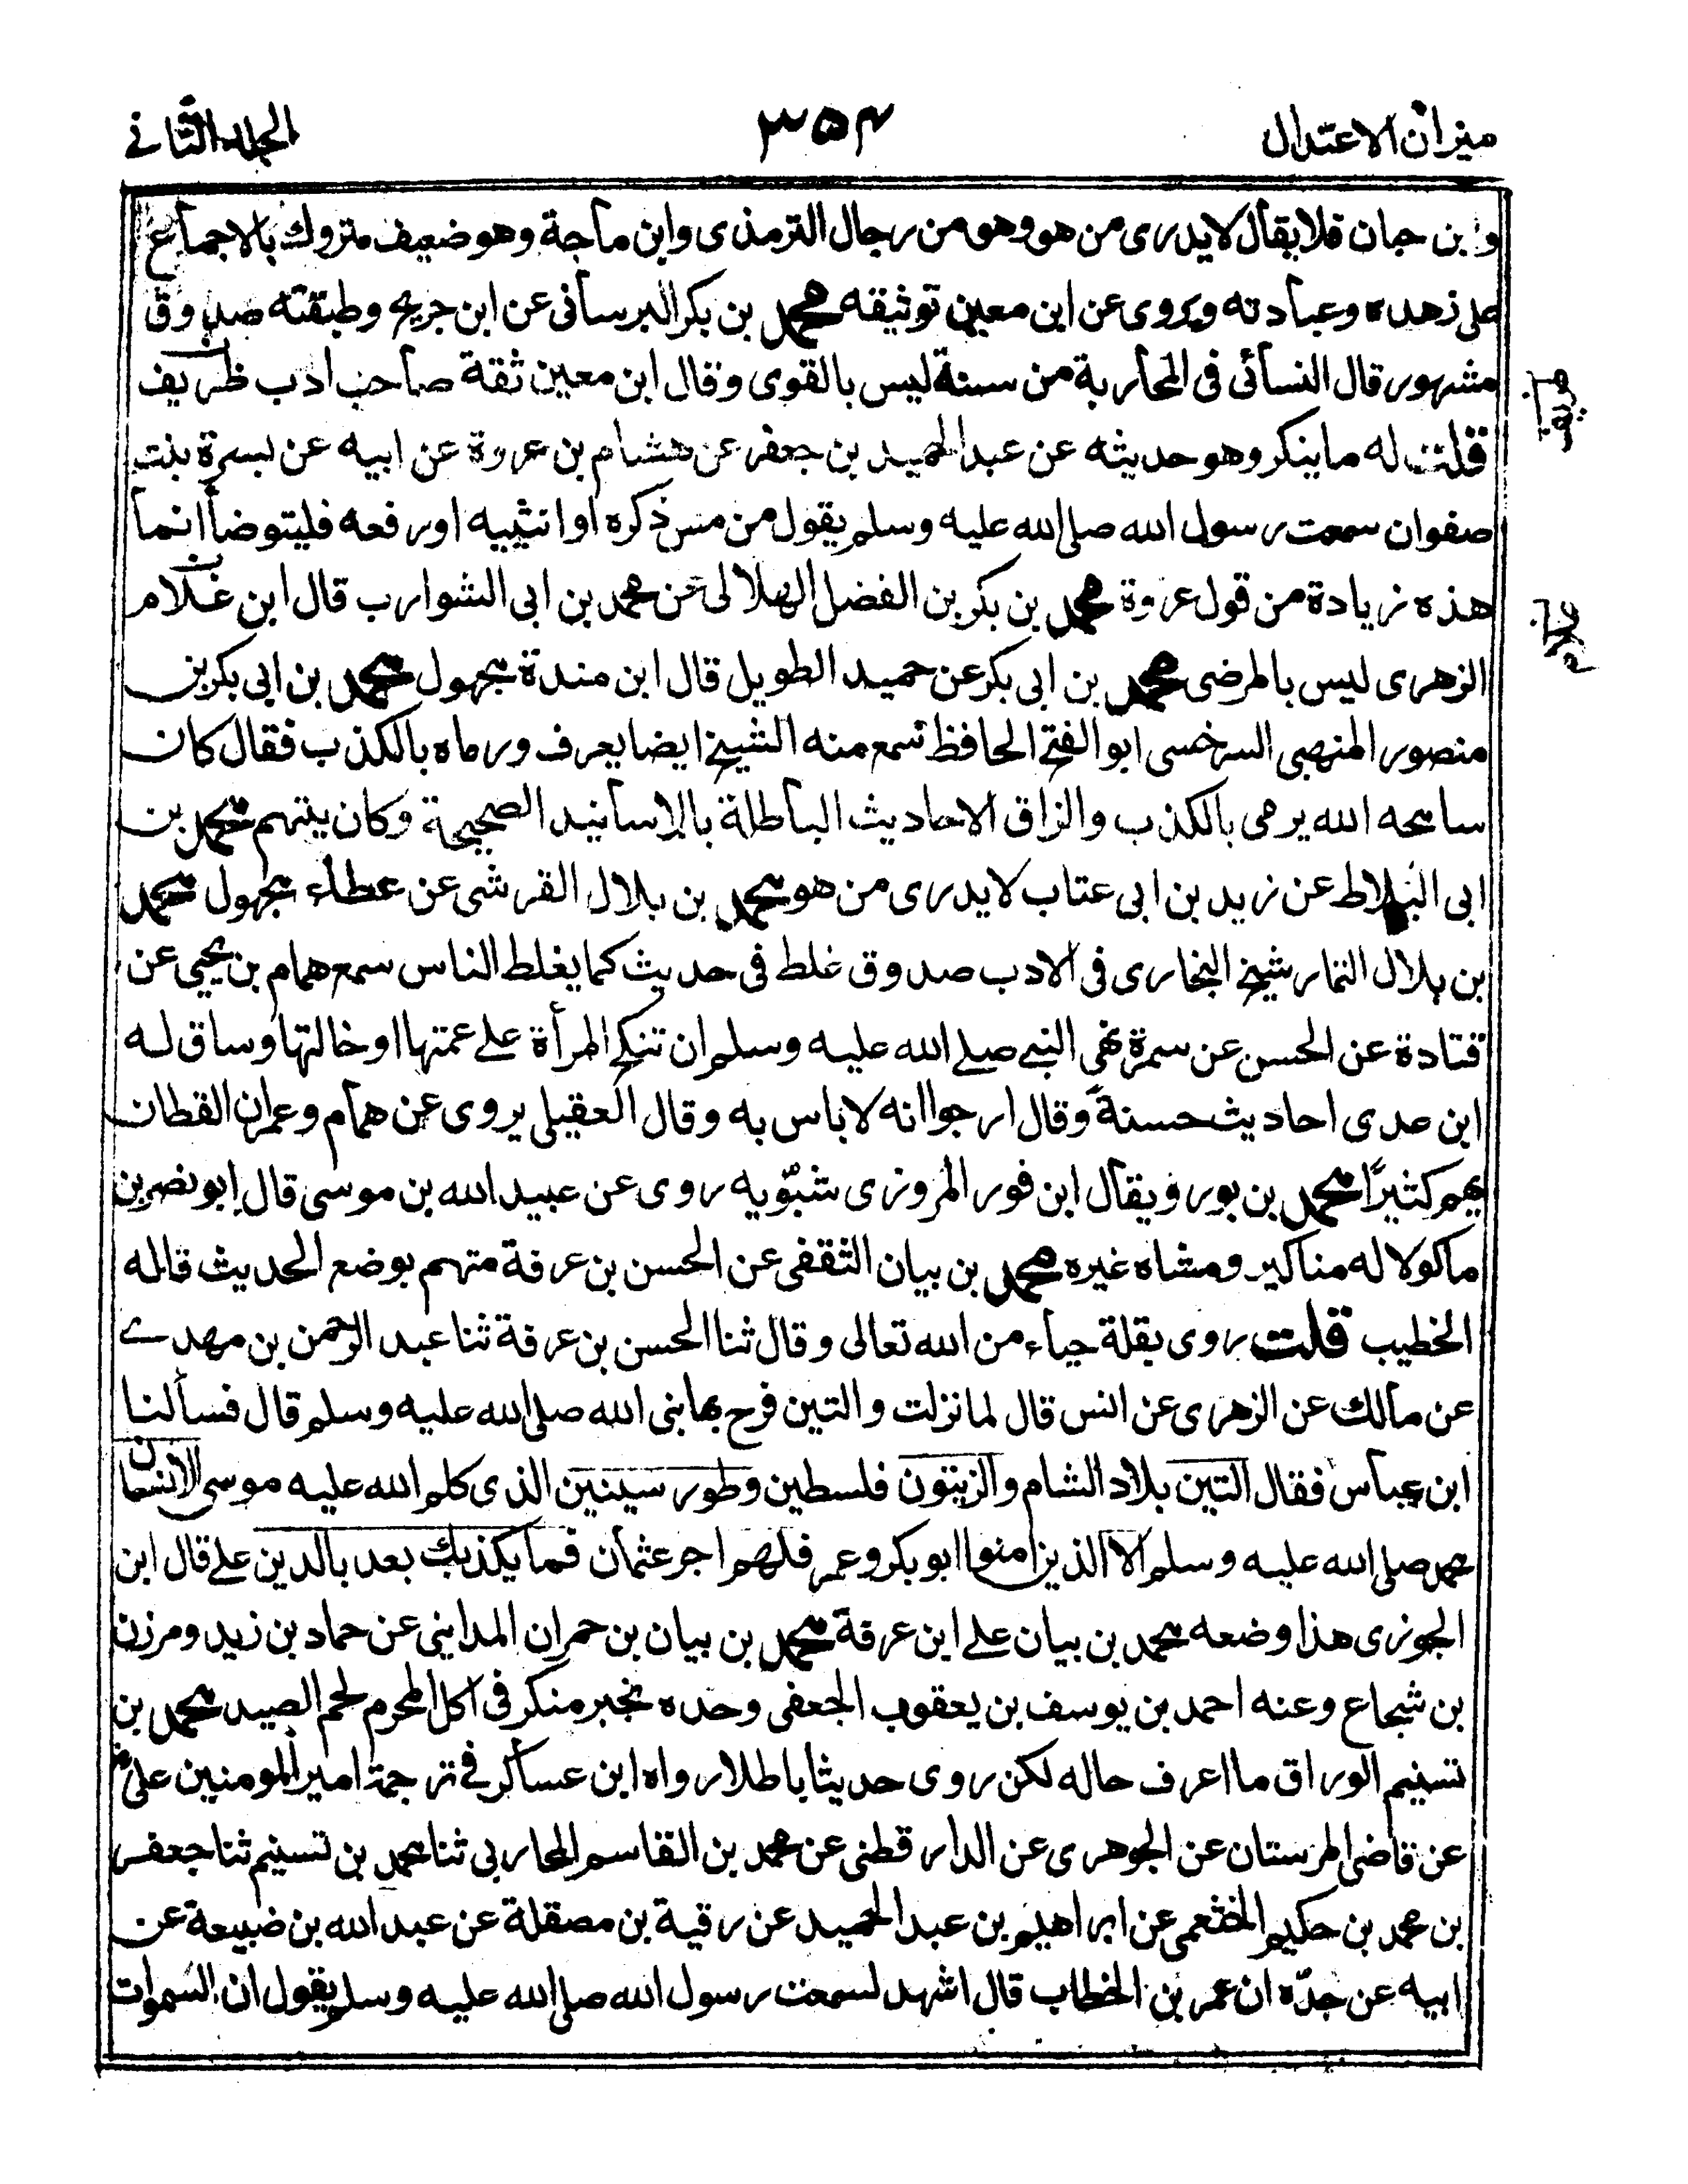 ميزان الاعتدال
٣٥٤
الجلد الثاني
وابن حبان فلا يقال لا يدرى من هو وهو من رجال الترمذى وابن ماجة وهو ضعيف متروك بالاجماع
على زهده وعبادته ويروى عن ابن معين توثيقه محمد بن بكر البرسانى عن ابن جريج وطبقته صدوق
مشهور قال النسائى فى المحاربة من سننه ليس بالقوى وقال ابن معين ثقة صاحب ادب ظريف
قلت له ما ينكر وهو حديثه عن عبد الحميد بن جعفر عن هشام بن عروة عن ابيه عن بسرة بنت
صفوان سمعت رسول الله صلى الله عليه وسلم يقول من مس ذكره او انثييه اورفعه فليتوضأ انما
هذه زيادة من قول عروة محمد بن بكر بن الفضل الهلالى عن محمد بن ابى الشوارب قال ابن غلام
الزهرى ليس بالمرضى محمد بن ابى بكر عن حميد الطويل قال ابن مندة مجهول محمد بن ابى بكر بن
منصور المنهبى السرخسى ابو الفتح الحافظ سمع منه الشيخ ايضا يعرف ورماه بالكذب فقال كان
سامحه الله يرمى بالكذب والزاق الاحاديث الباطلة بالاسانيد الصحيحة وكان يتهم محمد بن
ابى البلاط عن زيد بن ابى عتاب لا يدرى من هو محمد بن بلال القرشى عن عطاء مجهول محمد
بن بلال التمار شيخ البخارى فى الادب صدوق غلط فى حديث كما يغلط الناس سمع همام بن يحيى عن
قتادة عن الحسن عن سمرة نهى النبي صلے الله عليه وسلم ان تنكح المرأة علے عمتها او خالتها وساق له
ابن عدى احاديث حسنة وقال ارجوا انه لا باس به وقال العقيلى يروى عن همام وعمران القطان
يهم كثيرًا محمد بن بور ويقال ابن فور المروزى شبّويه روى عن عبيد الله بن موسى قال ابو نصر بن
ماكولا له مناكير ومشاه غيره محمد بن بيان الثقفى عن الحسن بن عرفة متهم بوضع الحديث قاله
الخطيب قلت روى بقلة حياء من الله تعالى وقال ثنا الحسن بن عرفة ثنا عبد الرحمن بن مهدے
عن مالك عن الزهرى عن انس قال لما نزلت والتين فرح بها نبى الله صلى الله عليه وسلم قال فسألنا
ابن عباس فقال التين بلاد الشام والزيتون فلسطين وطور سينين الذى كلم الله عليه موسى الانسان
محمد صلى الله عليه وسلم الا الذين امنوا ابو بكر وعمر فلهم اجر عثمان فما يكذبك بعد بالدين علے قال ابن
الجوزى هذا وضعه محمد بن بيان علے ابن عرفة محمد بن بيان بن حمران المداينى عن حماد بن زيد ومرزن
بن شجاع وعنه احمد بن يوسف بن يعقوب الجعفى وحده بخبر منكر فى اكل المحرم لحم الصيد محمد بن
تسنيم الوراق ما اعرف حاله لكن روى حديثا باطلا رواه ابن عساكر فے ترجمة امير المومنين على
عن قاضى المرستان عن الجوهرى عن الدارقطنى عن محمد بن القاسم المحاربى ثنا محمد بن تسنيم ثنا جعفر
بن محمد بن حكيم الخثعمى عن ابراهيم بن عبد الحميد عن رقية بن مصقلة عن عبد الله بن ضبيعة عن
ابيه عن جدّه ان عمر بن الخطاب قال اشهد لسمعت رسول الله صلى الله عليه وسلم يقول ان السموات